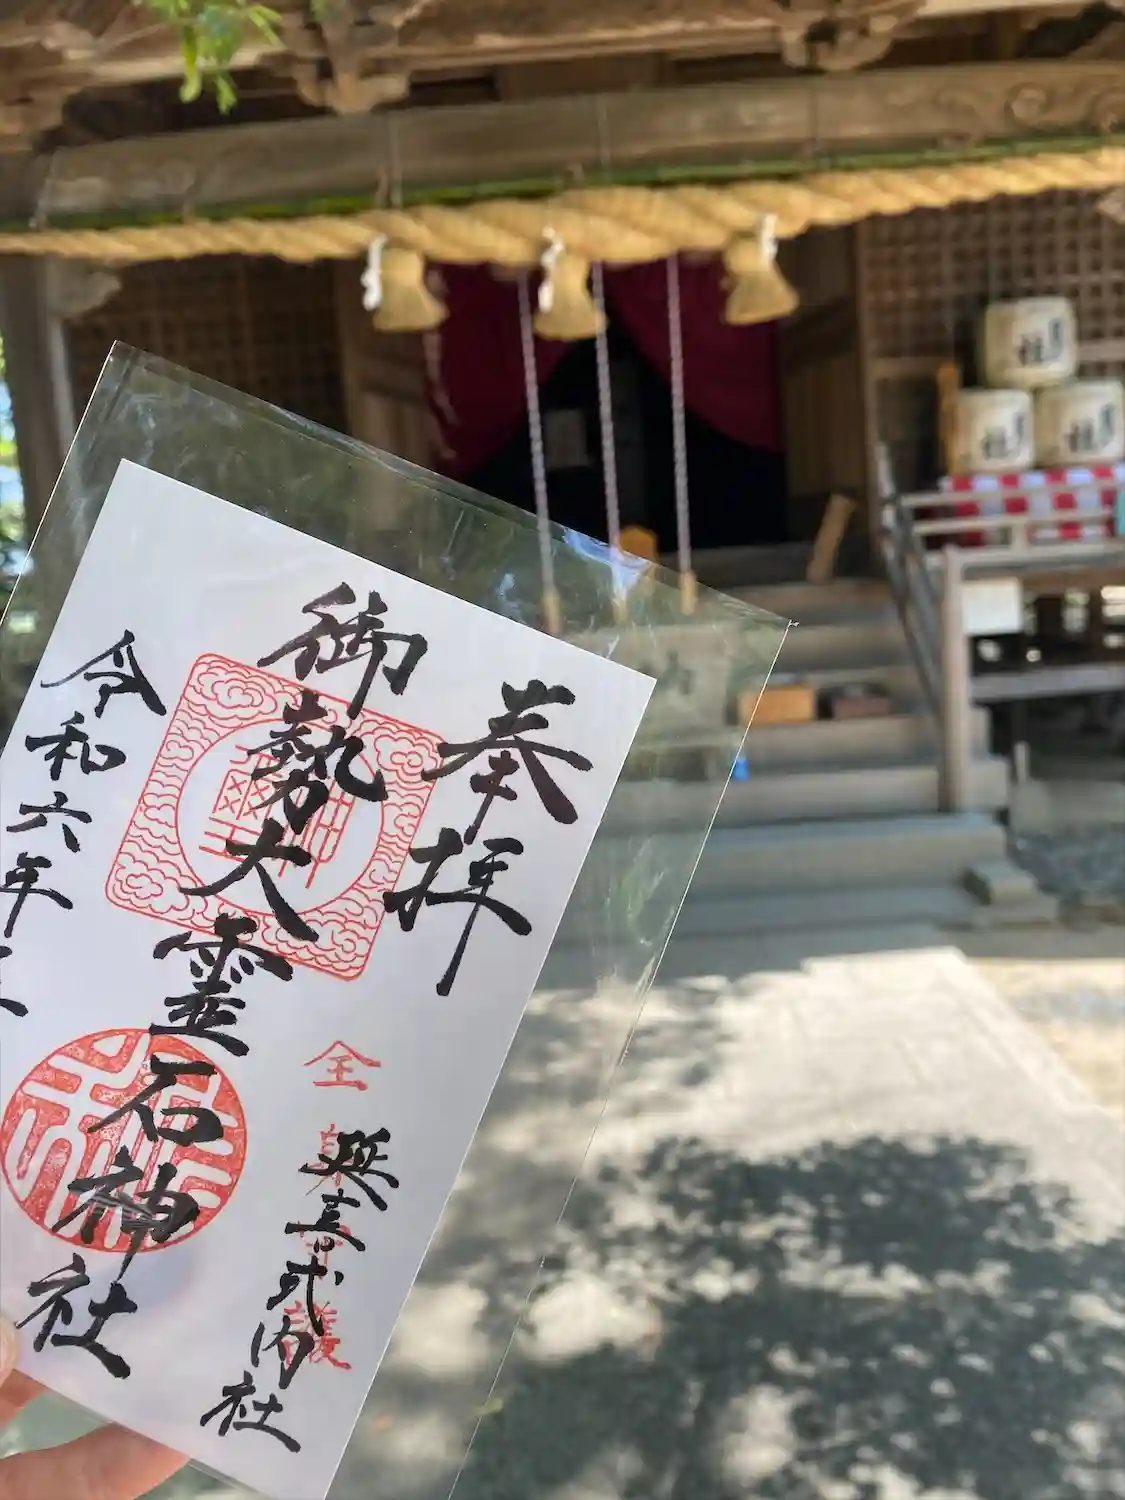 奉拝
延喜式内社
全
護
御勢大霊石神社
令和六年